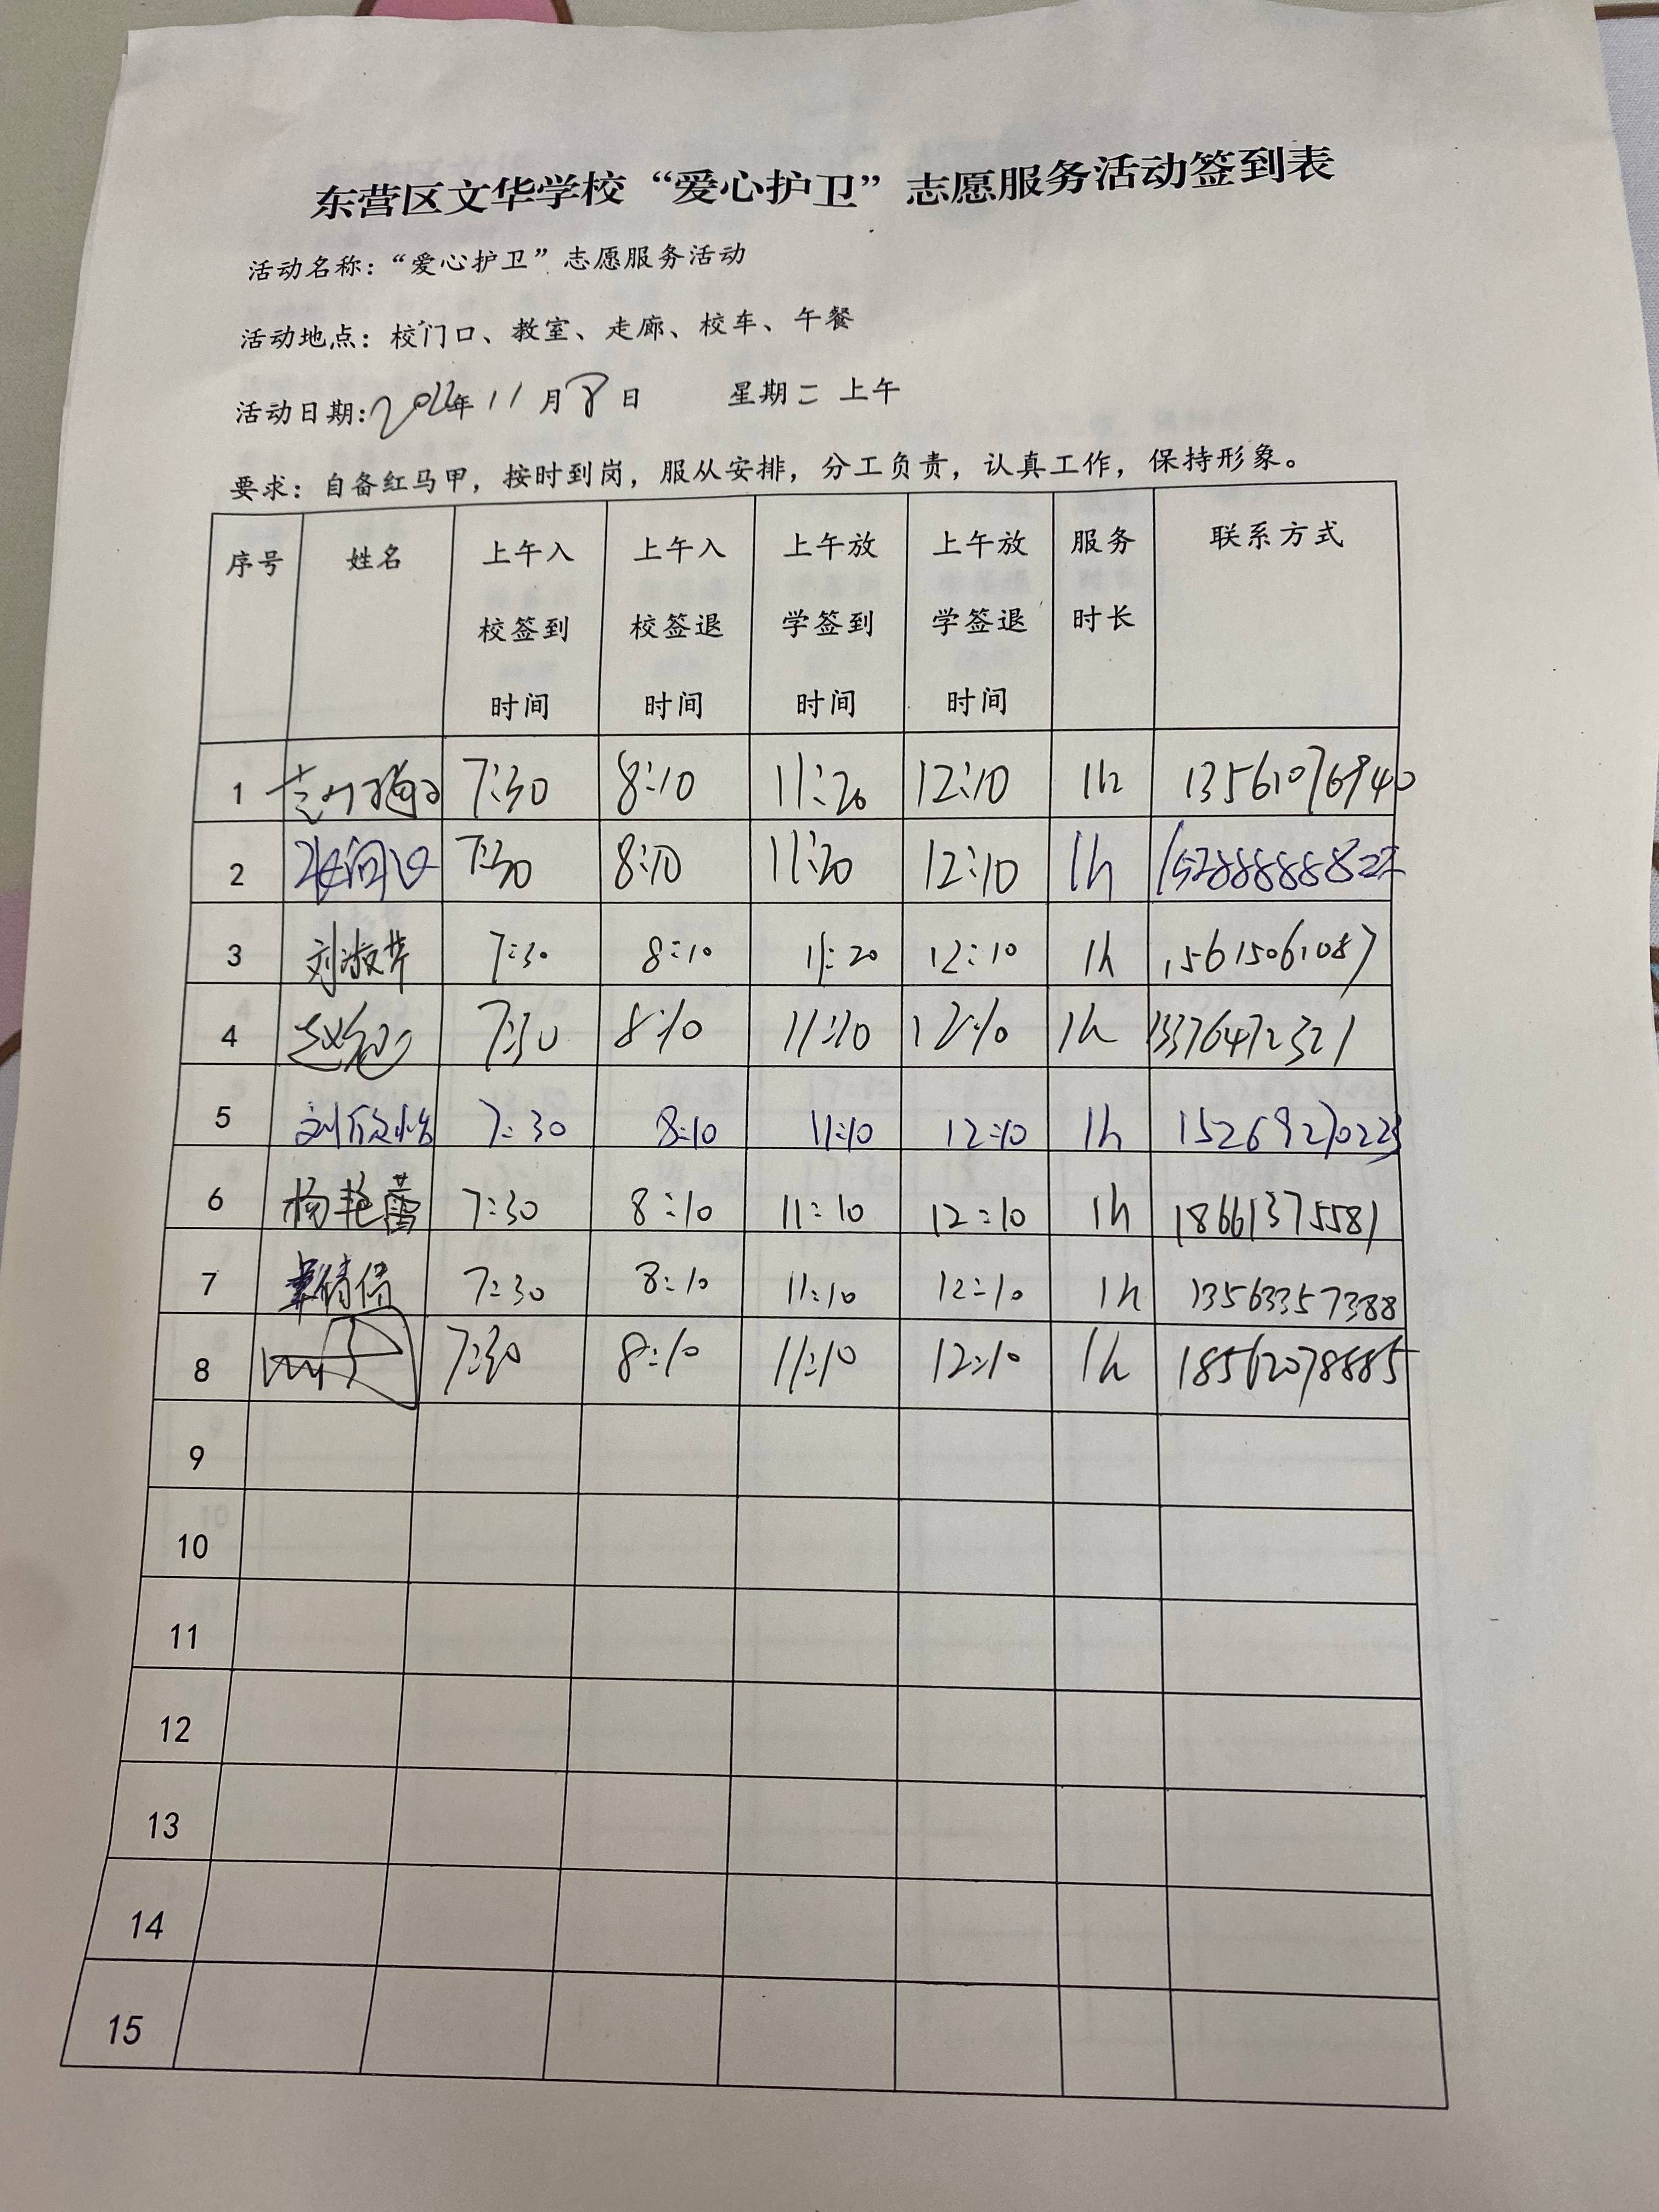 东营区文华学校“爱心护卫”志愿服务活动签到表
活动名称：“爱心护卫”志愿服务活动
活动地点：校门口、教室、走廊、校车、午餐
活动日期：2022年11月8日 星期二 上午
要求：自备红马甲，按时到岗，服从安排，分工负责，认真工作，保持形象。
序号 姓名 上午入校签到时间 上午入校签退时间 上午放学签到时间 上午放学签退时间 服务时长 联系方式
1 7:30 8:10 11:20 12:10 1h 13561076940
2 7:30 8:10 11:20 12:10 1h
3 刘淑芹 7:30 8:10 11:20 12:10 1h 15615061087
4 7:30 8:10 11:10 12:10 1h
5 刘欣怡 7:30 8:10 11:10 12:10 1h 15269270223
6 杨艳蕾 7:30 8:10 11:10 12:10 1h 18661375581
7 倩倩 7:30 8:10 11:10 12:10 1h 13563357388
8 7:30 8:10 11:10 12:10 1h 18562078885
9
10
11
12
13
14
15